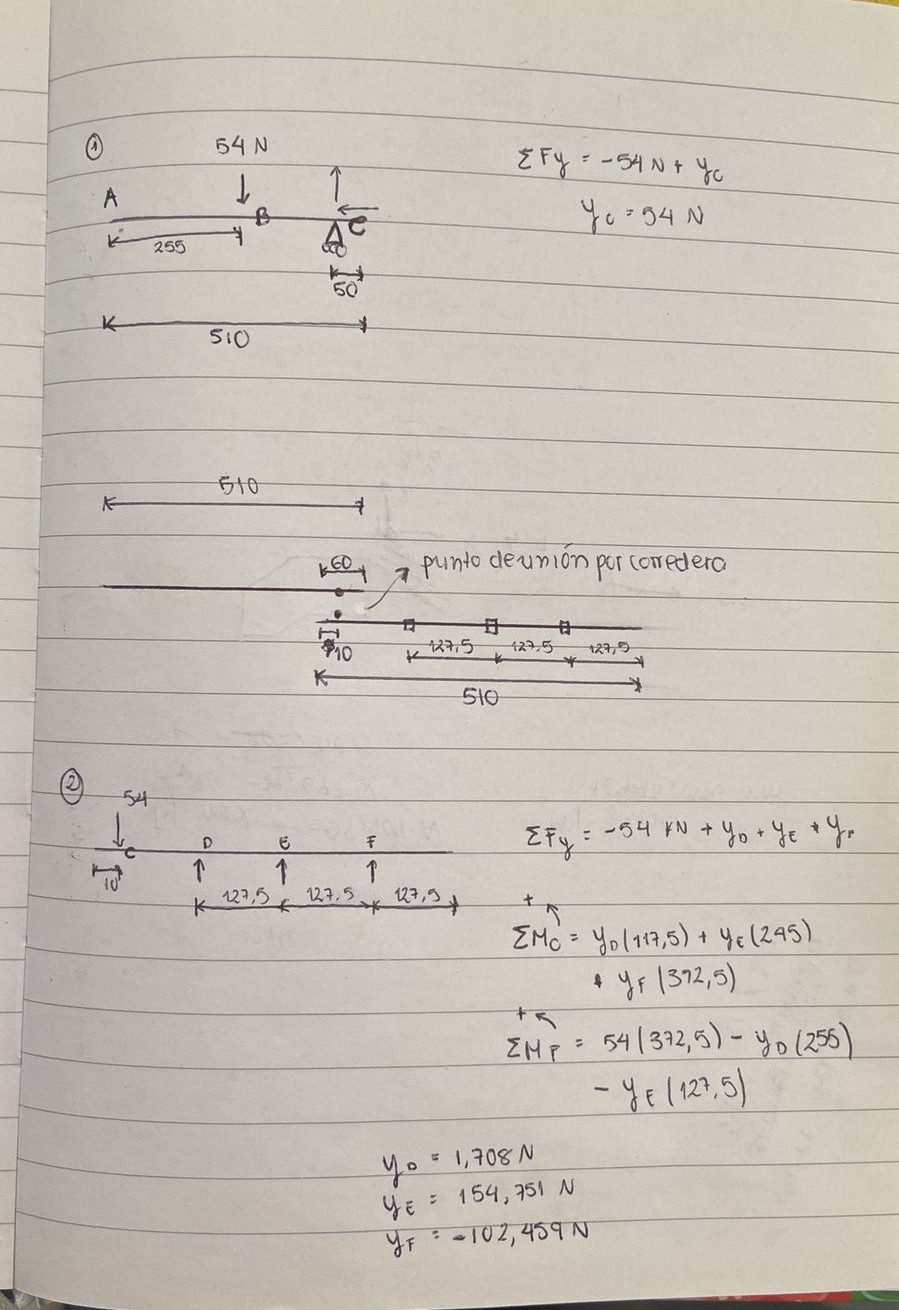 ①
54 N
ΣFy = -54 N + yc
yc = 54 N
A
B
C
255
50
510
510
60
punto de unión por corredera
10
127,5 127,5 127,5
510
②
54
C D E F
10
127,5 127,5 127,5
ΣFy = -54 KN + yD + yE + yF
+
ΣMC = yD(117,5) + yE(245)
+ yF(372,5)
+
ΣMF = 54(372,5) - yD(255)
- yE(127,5)
yD = 1,708 N
yE = 154,751 N
yF = -102,459 N